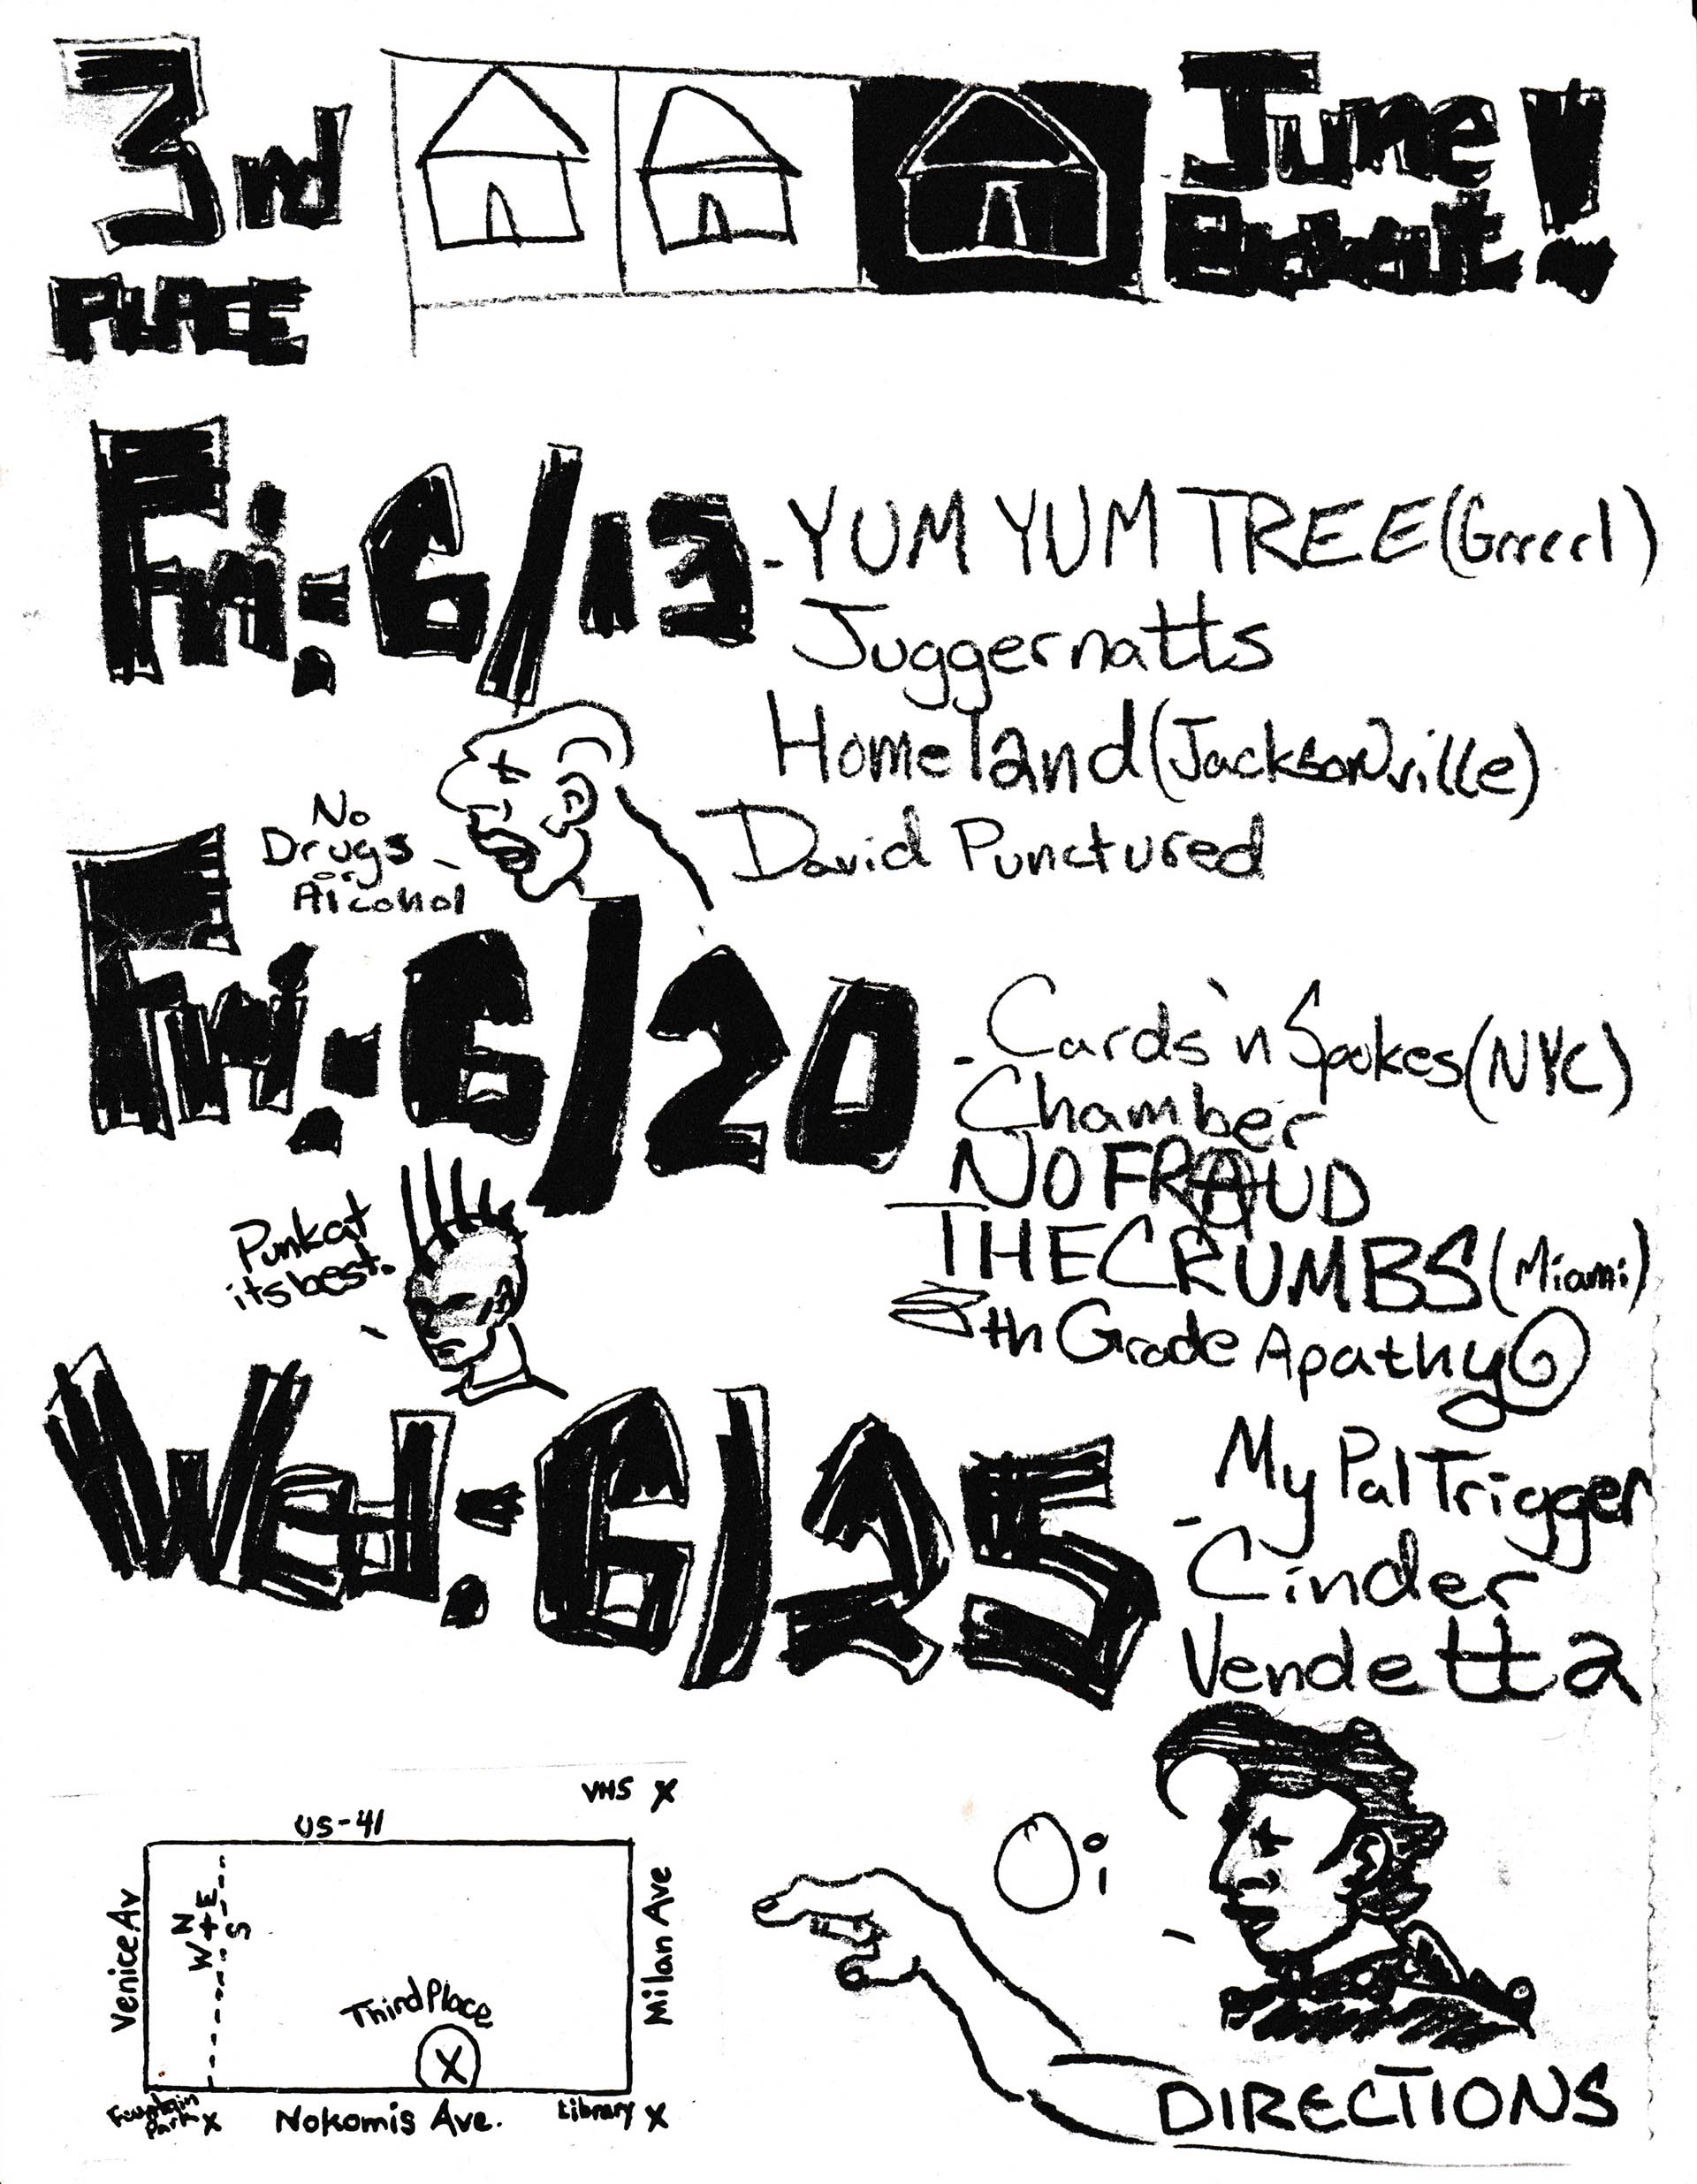 3rd
PLACE
June
!
Fri. - 6/13 - YUM YUM TREE (Grrrrl)
Juggernatts
Homeland (Jacksonville)
David Punctured
No
Drugs
or
Alcohol
Fri. - 6/20 - Cards 'n Spokes (NYC)
Chamber
NO FRAUD
THE CRUMBS (Miami)
5th Grade Apathy
Punk at
its best.
Wed. - 6/25 - My Pal Trigger
Cinder
Vendetta
Oi
DIRECTIONS
VHS X
US-41
Venice Av
N
W + E
S
Milan Ave
Third Place
X
Fountain
Park X
Nokomis Ave.
Library X